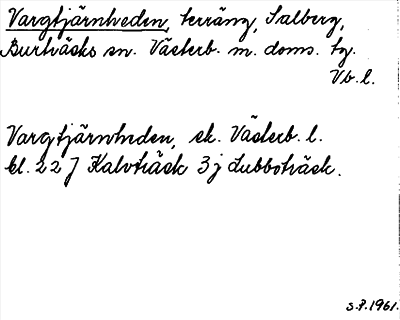 Vargtjärnheden, terräng, Salberg,
Burträsks sn. Västerb. m. doms. tg.
Vb. l.
Vargtjärnheden, ek. Västerb. l.
bl. 22 J Kalvträsk 3 j Lubboträsk.
S.P. 1961.